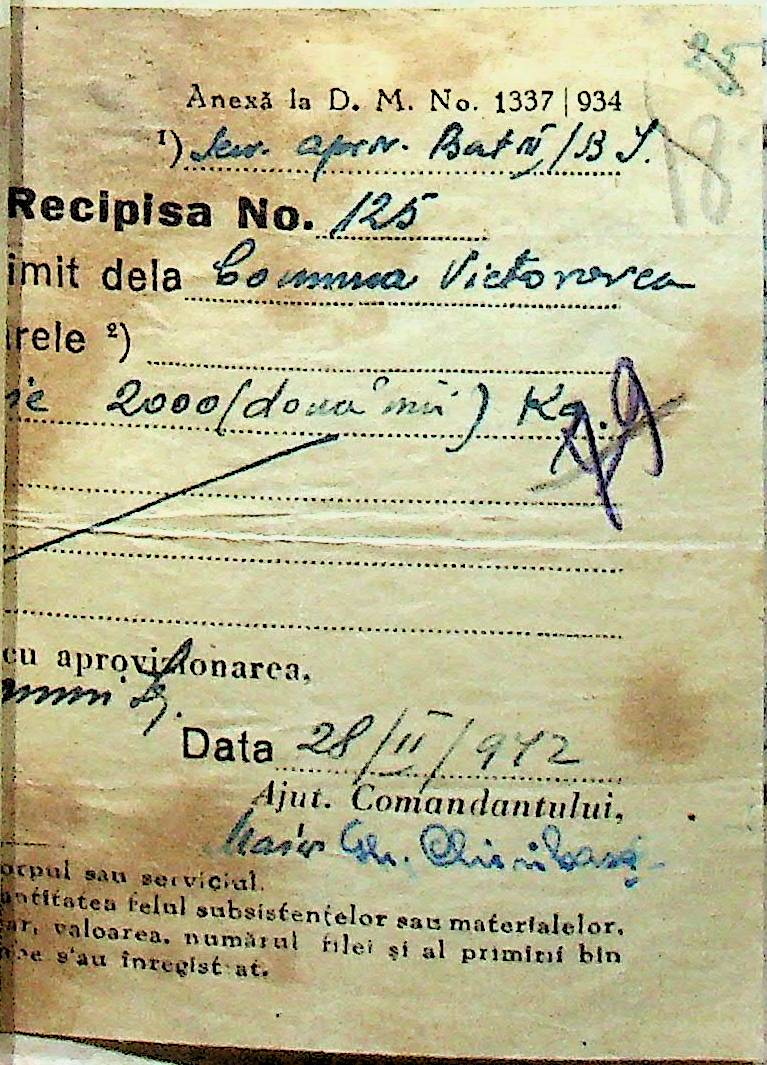 25
18
Anexă la D. M. No. 1337 | 934
1) Serv. aprov. Bat II/B S.
Recipisa No. 125
imit dela Comuna Victorovca
rele 2)
ie 2000 (două mii) Kg.
cu aprovizionarea,
Data 28/II/942
Ajut. Comandantului,
Maior Gh.
orpul sau serviciul.
antitatea felul subsistențelor sau materialelor.
ar, valoarea, numărul filei și al primirii bin
s'au înregistrat.